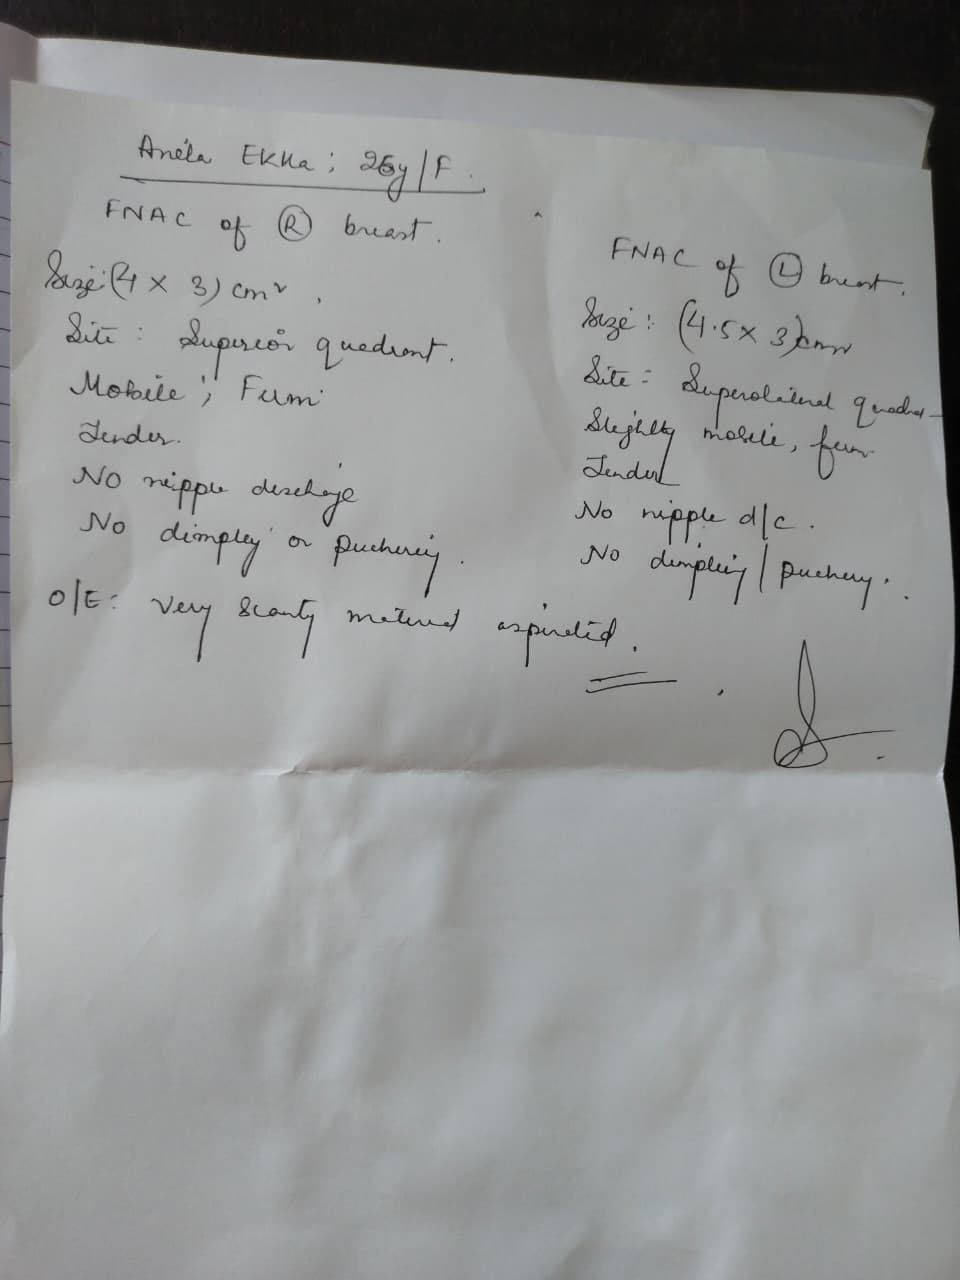 Anela Ekka; 26y/F.
FNAC of (R) breast.
Size: (4 x 3) cm²,
Site: Superior quadrant.
Mobile; Firm
Tender.
No nipple discharge
No dimpling or puckering.
O/E: Very scanty material aspirated.
FNAC of (L) breast.
Size: (4.5 x 3) cm
Site: Superolateral quadrant
Slightly mobile, firm
Tender
No nipple d/c.
No dimpling / puckering.